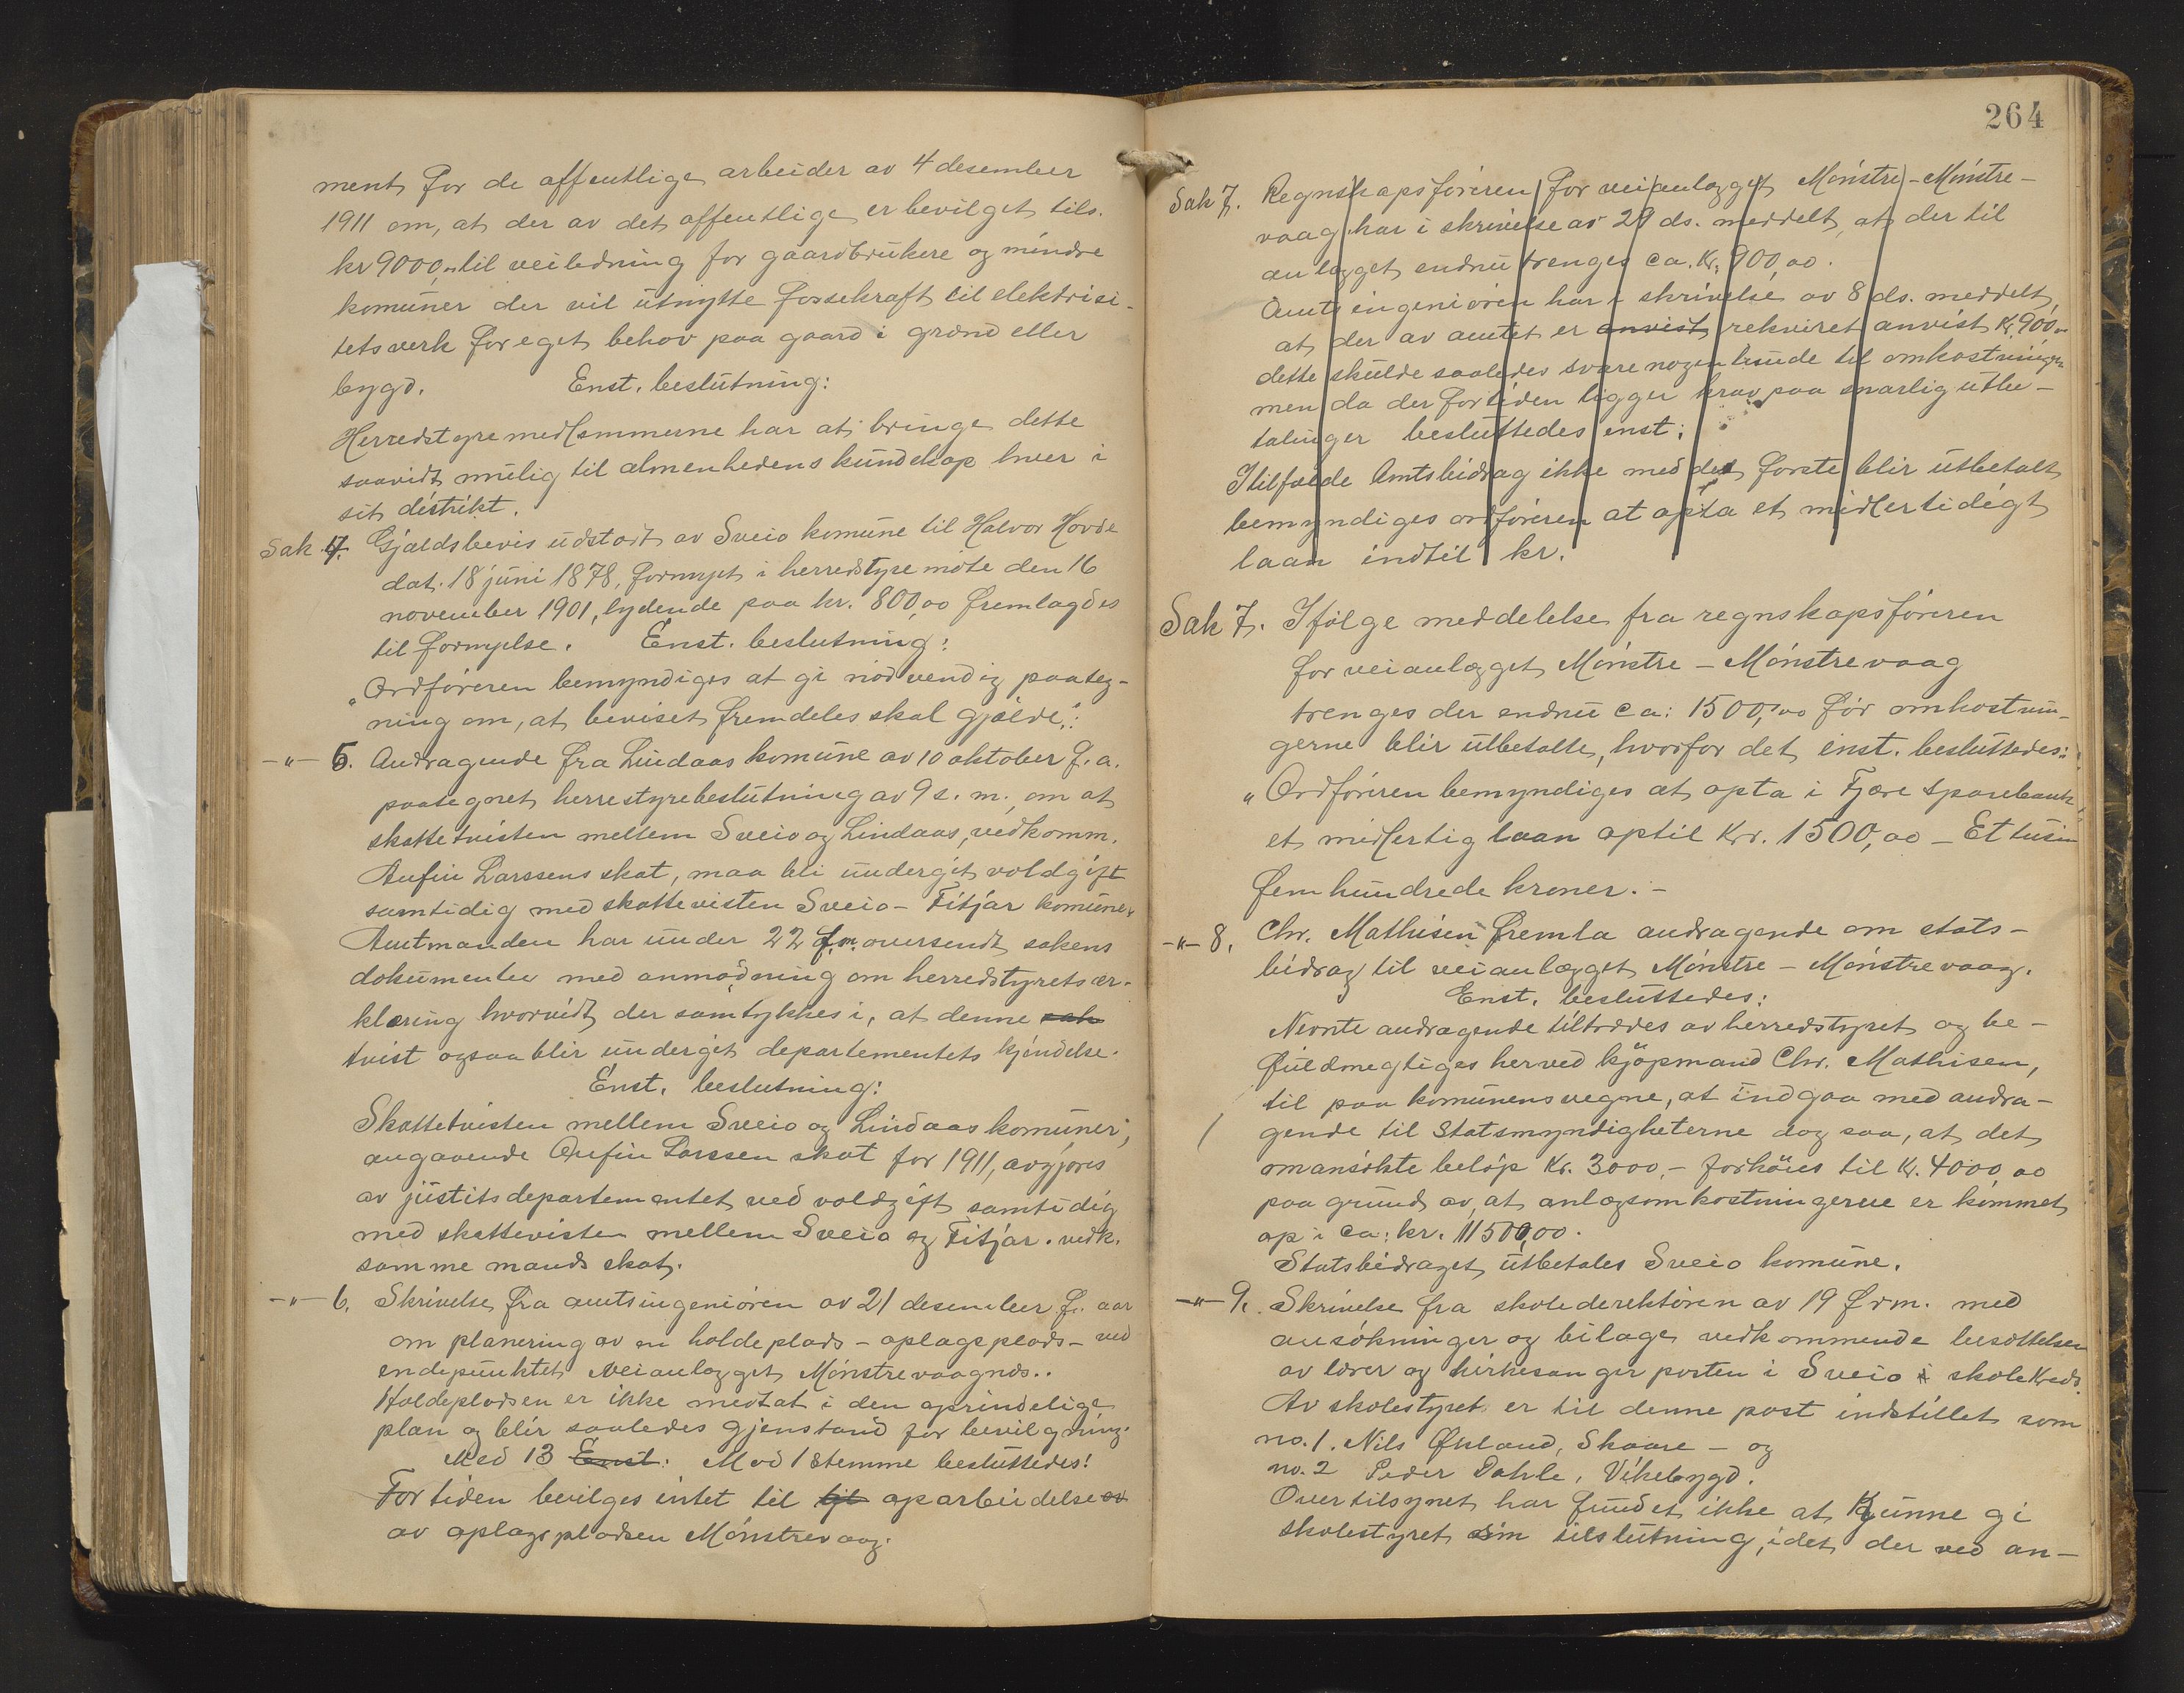 ment for de offentlige arbeider av 4 desember
1911 om, at der av det offentlige er bevilget tils.
kr 9000,- til veiledning for gaardbrukere og mindre
komuner der vil utnytte fossekraft til elektrisi-
tetsverk for eget behov paa gaard i grænd eller
bygd. Enst. beslutning:
Herredstyremedlemmerne har at bringe dette
saavidt mulig til almenhedens kundskap hver i
sit distrikt.
Sak 4. Gjældsbevis udstædt av Sveio komune til Halvor Hovde
dat. 18 juni 1878, fornyet i herredstyremöte den 16
november 1901, lydende paa kr. 800,00 fremlagdes
til fornyelse. Enst. beslutning:
"Ordföreren bemyndiges at gi nödvendig paateg-
ning om, at beviset fremdeles skal gjælde."
-"- 5. Andragende fra Lindaas komune av 10 oktober f. a.
paategnet herrestyrebeslutning av 9 s. m., om at
skattetvisten mellem Sveio og Lindaas, vedkomm.
Anfin Larssens skat, maa bli undergit voldgift
samtidig med skattevisten Sveio - Fitjar komuner.
Amtmanden har under 22 f.m. oversendt sakens
dokumenter med anmodning om herredstyrets er-
klæring hvorvidt der samtykkes i, at denne sak
tvist ogsaa blir undergit departementets kjendelse.
Enst. beslutning:
Skattetvisten mellem Sveio og Lindaas komuner,
angaaende Anfin Larssen skat for 1911, avgjöres
av justitsdepartementet ved voldgift samtidig
med skattevisten mellem Sveio og Fitjar. vedk.
samme mands skat.
-"- 6. Skrivelse fra amtsingeniören av 21 desember f. aar
om planering av en holdeplads - oplagsplads - ved
endepunktet veianlægget Mönstrevaagnds..
Holdepladsen er ikke medtat i den oprindelige
plan og blir saaledes gjenstand for bevilgning.
Med 13 Enst: Mod 1 stemme besluttedes:
For tiden bevilges intet til til oparbeidelse av
av oplagspladsen Mönstrevaag.
264
Sak 7. Regnskapsföreren for veianlægget Mönstre - Mönstre-
vaag har i skrivelse av 29 ds. meddelt, at der til
anlægget endnu trenges ca. kr. 900,00.
Amtsingeniören har i skrivelse av 8 ds. meddelt,
at der av amtet er anvist rekviret anvist Kr. 900,-
dette skulde saaledes svare nogenlunde til omkostningen
men da der for tiden ligger krav paa snarlig utbe-
talinger besluttedes enst:
I tilfælde Amtsbidrag ikke med det förste blir utbetalt
bemyndiges ordföreren at opta et midlertidigt
laan indtil kr.
Sak 7. Ifölge meddelelse fra regnskapsföreren
for veianlægget Mönstre - Mönstrevaag
trenges der endnu ca: 1500,00 för omkostnin-
gerne blir utbetalte, hvorfor det enst. besluttedes:
"Ordföreren bemyndiges at opta i Fjære Sparebank
et midlertig laan optil Kr. 1500,00 - Et tusin
femhundrede kroner. -
-"- 8. Chr. Mathisen fremla andragende om stats-
bidrag til veianlægget Mönstre - Mönstrevaag.
Enst. besluttedes:
Nevnte andragende tiltrædes av herredstyret og be-
fuldmegtiges herved kjöpmand Chr. Mathisen,
til paa komunens vegne, at indgaa med andra-
gende til Statsmyndigheterne dog saa, at det
omansökte belöp Kr. 3000,- forhöies til Kr. 4000,00
paa grund av, at anlægsomkostningerne er kommet
op i ca: kr. 11500,00.
Statsbidraget utbetales Sveio komune.
-"- 9. Skrivelse fra skolederektören av 19 f.m. med
ansökninger og bilage vedkommende besættelsen
av lærer og kirkesanger posten i Sveio i skolekreds.
Av skolestyret er til denne post indstillet som
no. 1. Nils Ökland, Skaare - og
no. 2 Peder Dahle, Vikebygd.
Overtilsynet har fundet ikke at kunne gi
skolestyret sin tilslutning, idet der ved an-